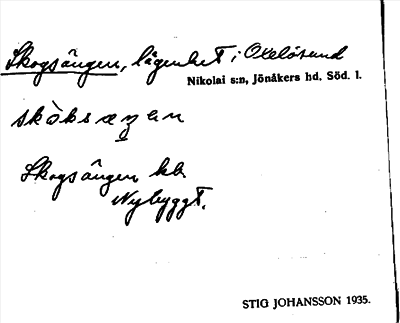 Skogsängen, lägenhet i Oxelösund
Nikolai s:n, Jönåkers hd, Söd. l.
skòksæŋen
Skogsängen kb
Nybyggt.
STIG JOHANSSON 1935.